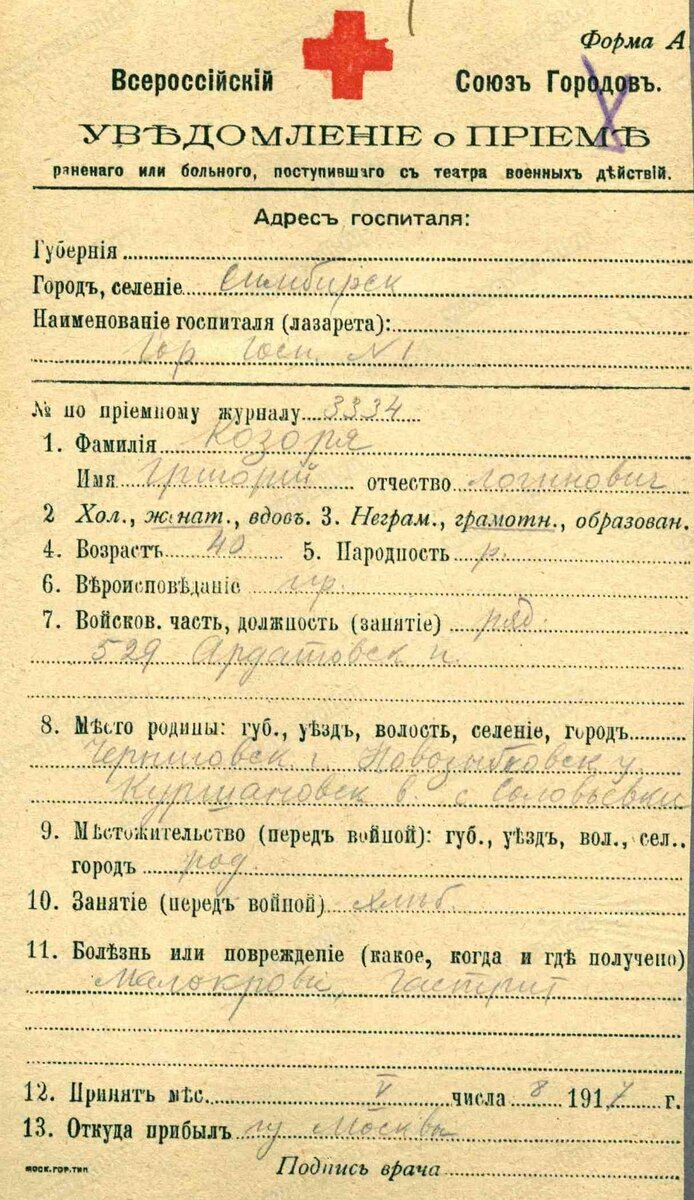 Форма А.
Всероссійскій Союзъ Городовъ.
УВѢДОМЛЕНІЕ о ПРІЕМѢ
раненаго или больного, поступившаго съ театра военныхъ дѣйствій.
Адресъ госпиталя:
Губернія
Городъ, селеніе Симбирск
Наименованіе госпиталя (лазарета):
Гор Госп. N 1
№ по пріемному журналу 3334
1. Фамилія Козоря
Имя Григорий отчество Логинович
2 Хол., женат., вдовъ. 3. Неграм., грамотн., образован.
4. Возрастъ 40 5. Народность р.
6. Вѣроисповѣданіе пр.
7. Войсков. часть, должность (занятіе) ряд.
529 Ардатовск п.
8. Мѣсто родины: губ., уѣздъ, волость, селеніе, городъ
Черниговск г. Новозыбковск у
Куршановск в с Соловьевки
9. Мѣстожительство (передъ войной): губ., уѣздъ, вол., сел..
городъ род.
10. Занятіе (передъ войной) хлѣб.
11. Болѣзнь или поврежденіе (какое, когда и гдѣ получено)
Малокровіе, гастрит
12. Принятъ мѣс. V числа 8 1917 г.
13. Откуда прибылъ Москвы
Подпись врача
МОСК.ГОР.ТИП